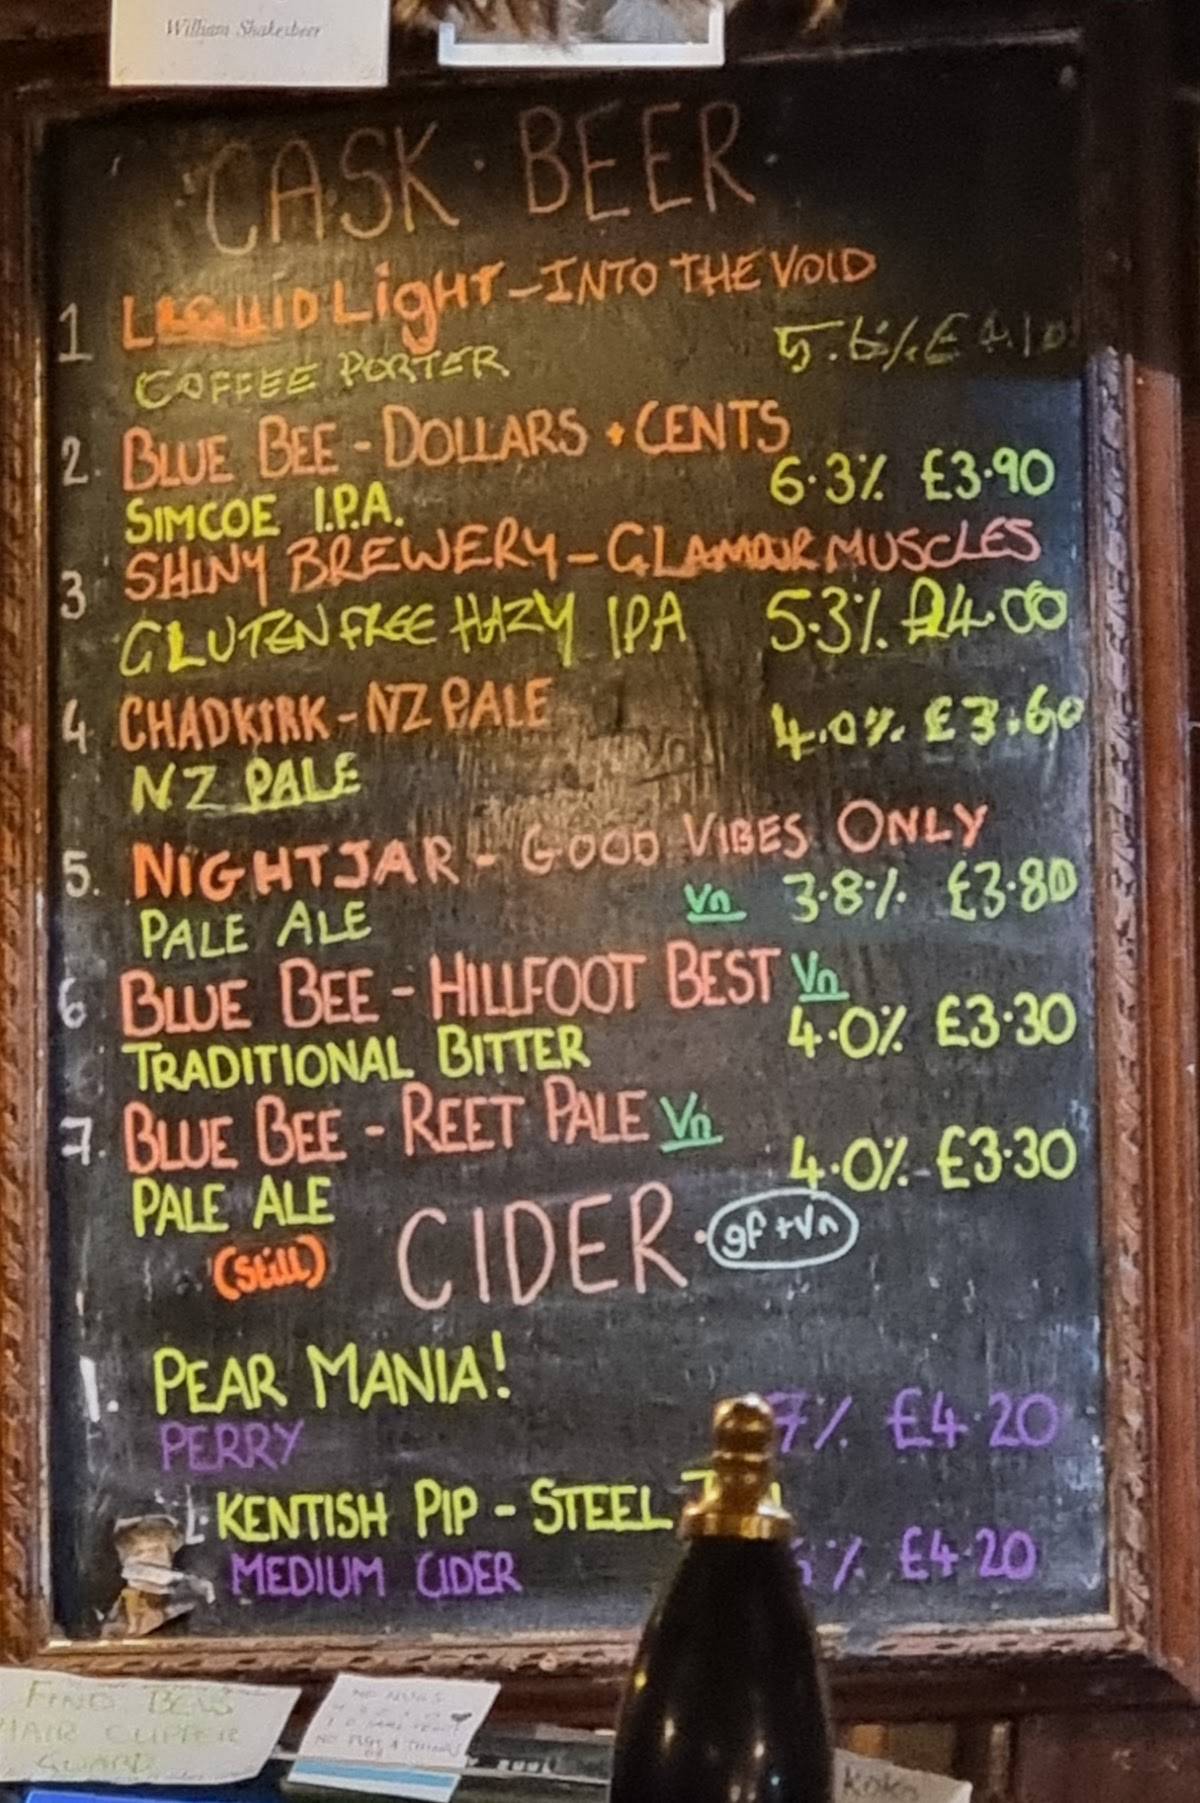 William Shakesbeer
CASK · BEER
1 LIQUID LIGHT - INTO THE VOID
COFFEE PORTER 5.6% £4.10
2. BLUE BEE - DOLLARS + CENTS
SIMCOE I.P.A. 6.3% £3.90
3 SHINY BREWERY - GLAMOUR MUSCLES
GLUTEN FREE HAZY IPA 5.3% £4.00
4 CHADKIRK - NZ PALE
NZ PALE 4.0% £3.60
5. NIGHTJAR - GOOD VIBES ONLY
PALE ALE Vn 3.8% £3.80
6 BLUE BEE - HILLFOOT BEST Vn
TRADITIONAL BITTER 4.0% £3.30
7. BLUE BEE - REET PALE Vn
PALE ALE 4.0% £3.30
(Still) CIDER · gf + Vn
1. PEAR MANIA!
PERRY 7% £4.20
KENTISH PIP - STEEL
MEDIUM CIDER % £4.20
FIND BEN'S
HAIR CLIPPER
GUARD
NO